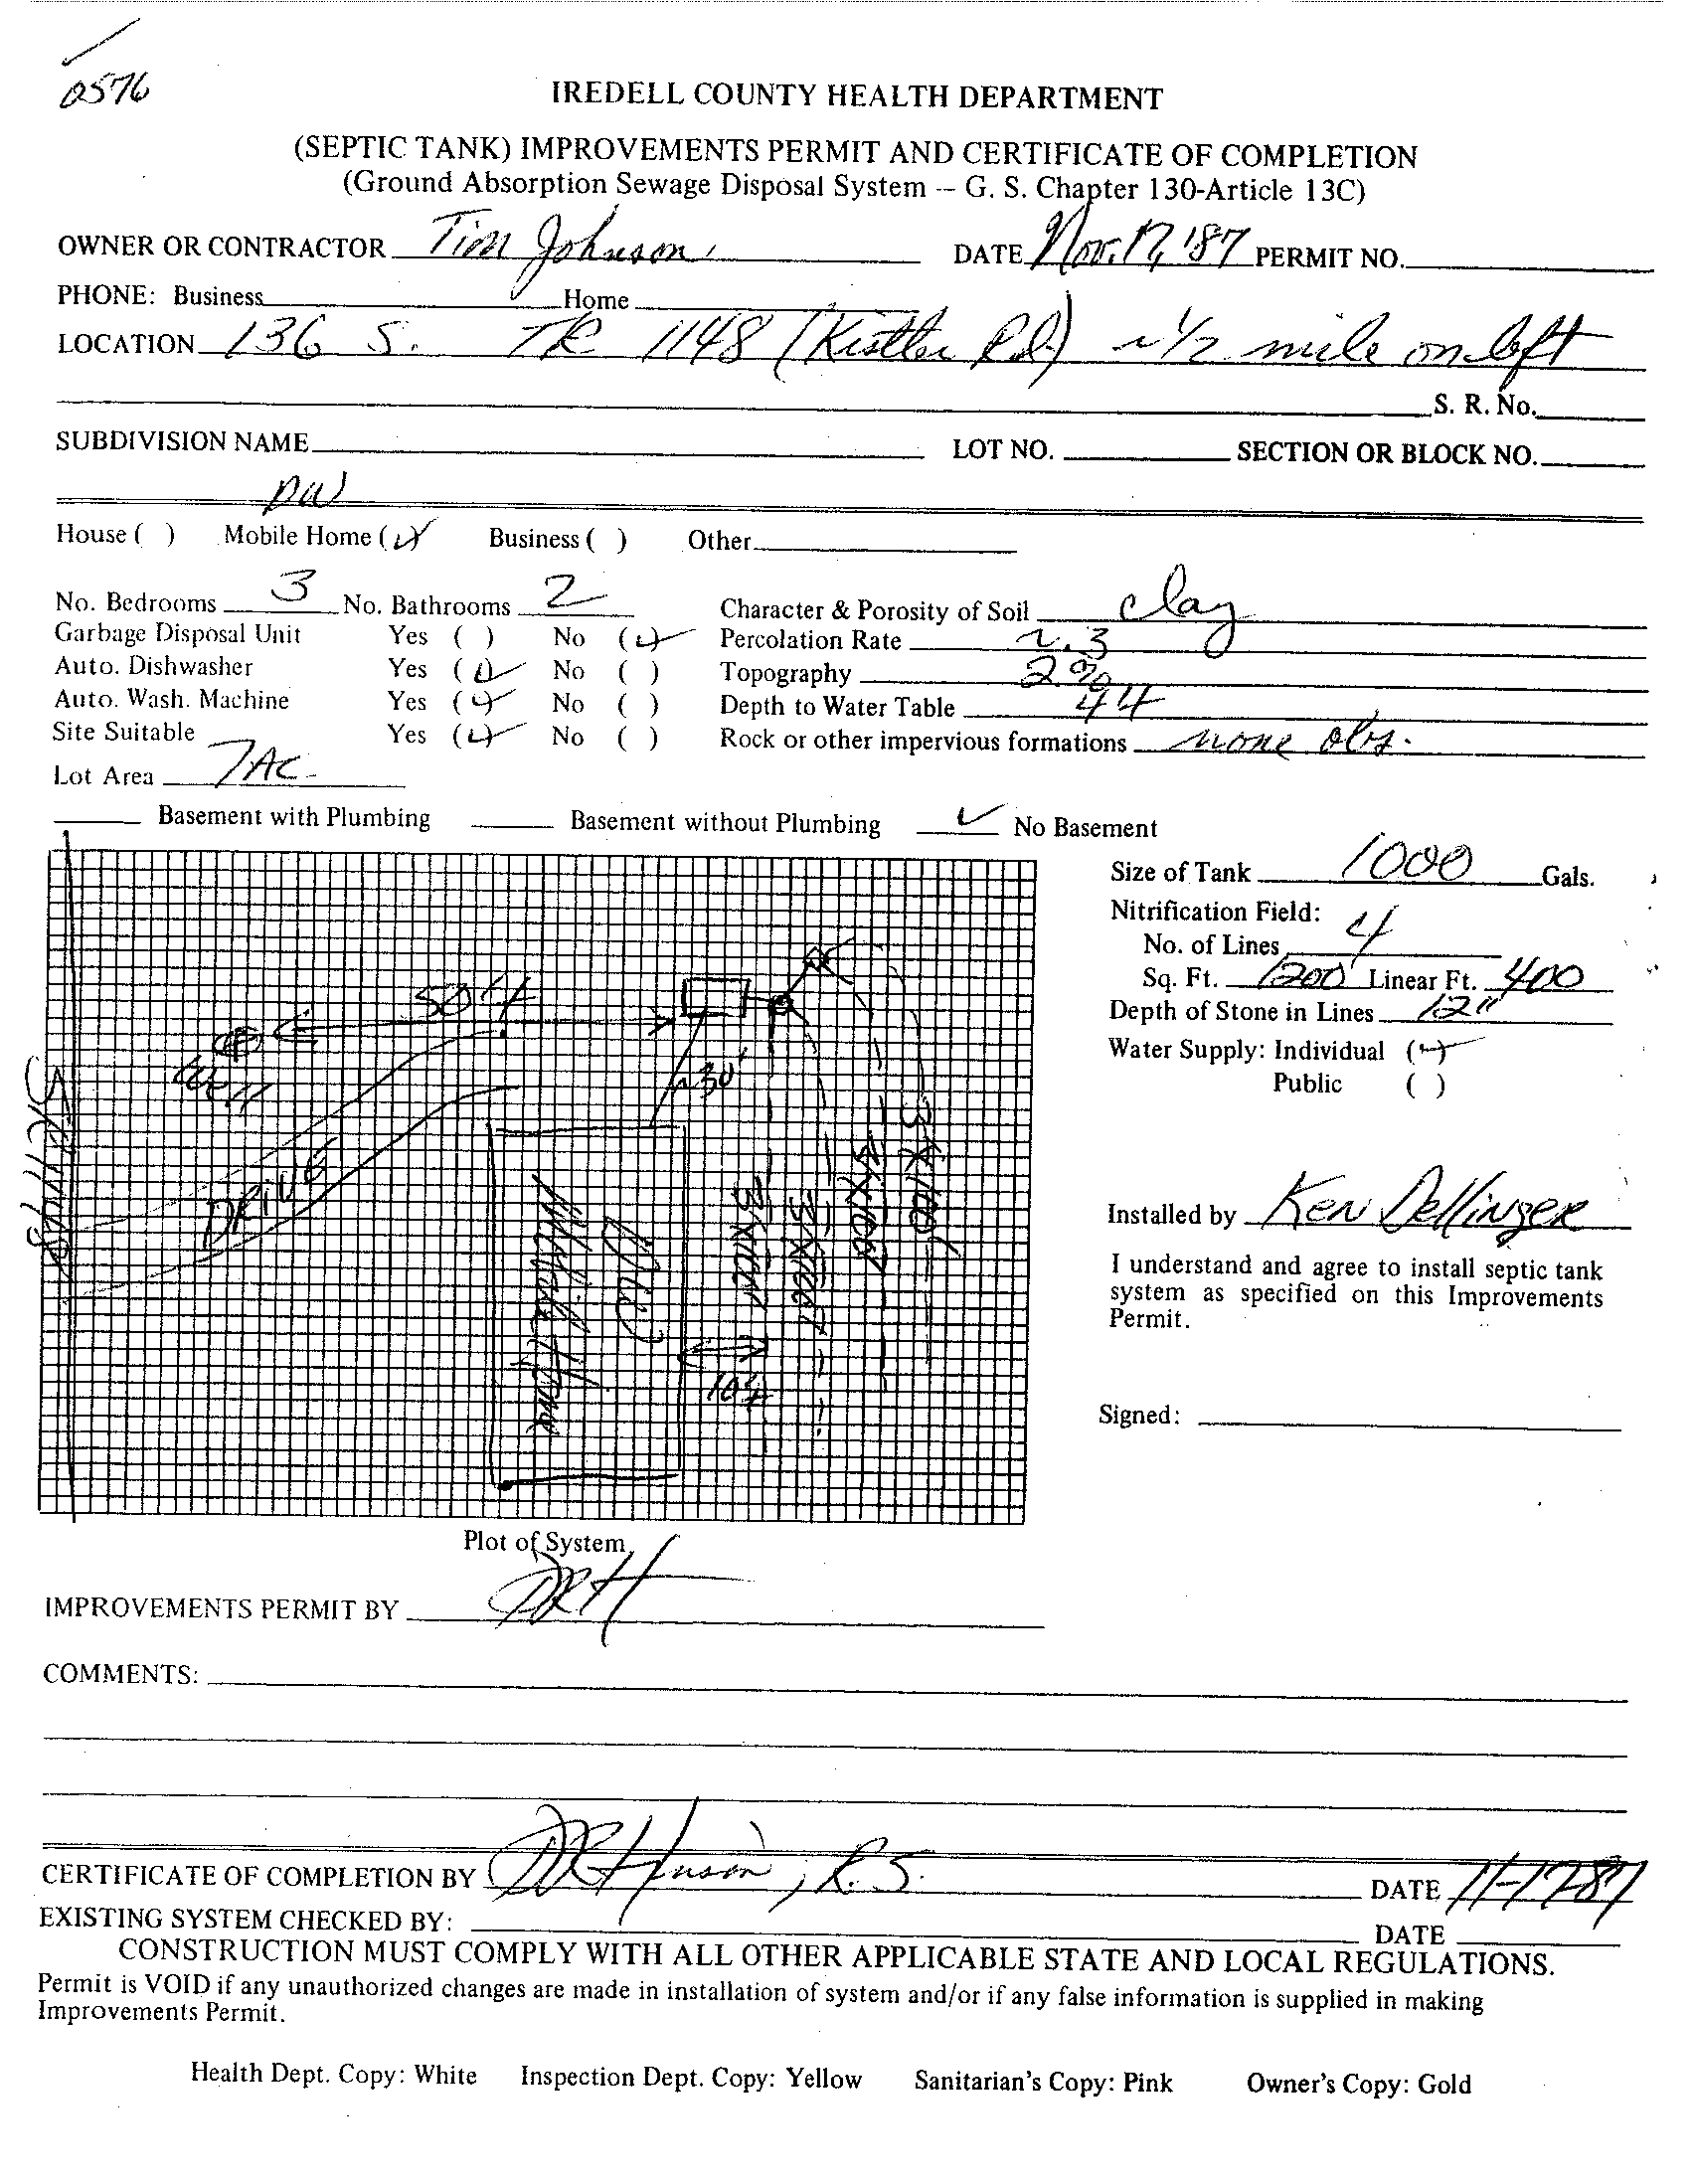 0576
IREDELL COUNTY HEALTH DEPARTMENT
(SEPTIC TANK) IMPROVEMENTS PERMIT AND CERTIFICATE OF COMPLETION
(Ground Absorption Sewage Disposal System -- G. S. Chapter 130-Article 13C)
OWNER OR CONTRACTOR Tim Johnson DATE Nov. 17, '87 PERMIT NO.
PHONE: Business Home
LOCATION 136 S. TR 1148 (Kistler Rd) ~ 1/2 mile on left
S. R. No.
SUBDIVISION NAME LOT NO. SECTION OR BLOCK NO.
DW
House ( ) Mobile Home (✓) Business ( ) Other
No. Bedrooms 3 No. Bathrooms 2 Character & Porosity of Soil clay
Garbage Disposal Unit Yes ( ) No (✓) Percolation Rate ~.3
Auto. Dishwasher Yes (✓) No ( ) Topography 2%
Auto. Wash. Machine Yes (✓) No ( ) Depth to Water Table 44
Site Suitable Yes (✓) No ( ) Rock or other impervious formations none obs.
Lot Area 7AC
Basement with Plumbing Basement without Plumbing ✓ No Basement
Size of Tank 1000 Gals.
Nitrification Field:
No. of Lines 4
Sq. Ft. 1200 Linear Ft. 400
Depth of Stone in Lines 12"
Water Supply: Individual (✓)
Public ( )
50'+
Well
~30'
DRIVE
SR 1148
DW
Mobile Home
3x100'
3x100'
3x100'
3x100'
10'+
Installed by Ken Dellinger
I understand and agree to install septic tank
system as specified on this Improvements
Permit.
Signed:
Plot of System
IMPROVEMENTS PERMIT BY DRH
COMMENTS:
CERTIFICATE OF COMPLETION BY DRHinson, R.S. DATE 11-17-87
EXISTING SYSTEM CHECKED BY: DATE
CONSTRUCTION MUST COMPLY WITH ALL OTHER APPLICABLE STATE AND LOCAL REGULATIONS.
Permit is VOID if any unauthorized changes are made in installation of system and/or if any false information is supplied in making
Improvements Permit.
Health Dept. Copy: White Inspection Dept. Copy: Yellow Sanitarian's Copy: Pink Owner's Copy: Gold